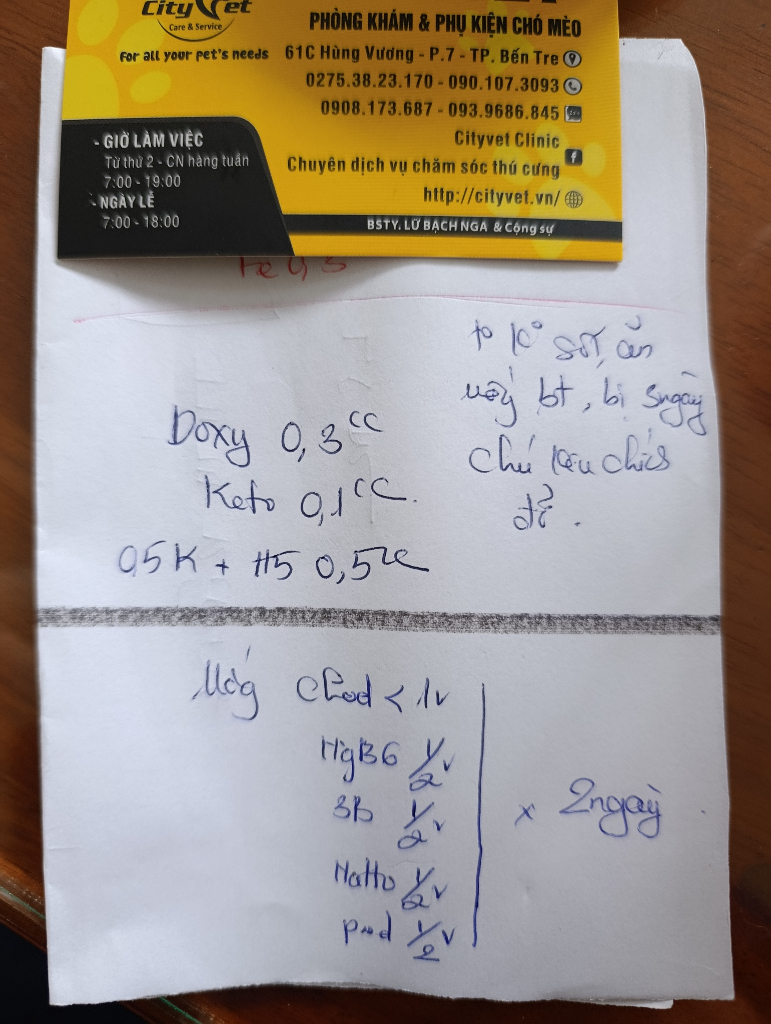 City Vet
Care & Service
For all your pet's needs
PHÒNG KHÁM & PHỤ KIỆN CHÓ MÈO
61C Hùng Vương - P.7 - TP. Bến Tre
0275.38.23.170 - 090.107.3093
0908.173.687 - 093.9686.845
Cityvet Clinic
Chuyên dịch vụ chăm sóc thú cưng
http://cityvet.vn/
BSTY. LỮ BẠCH NGA & Cộng sự
- GIỜ LÀM VIỆC
Từ thứ 2 - CN hàng tuần
7:00 - 19:00
- NGÀY LỄ
7:00 - 18:00
t° K° sốt, ăn
uống bt, bị 3ngày
chủ
Doxy 0,3cc
Keto 0,1cc.
0,5K + H5 0,5cc
Uống < 1v
MgB6 1/2v
3B 1/2v
Natto 1/2v
pred 1/2v
x 2ngày